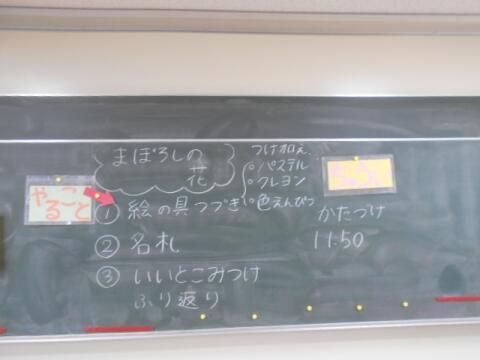 まぼろしの
花
つけ加え
・パステル
・クレヨン
・色えんぴつ
やること
① 絵の具つづき
② 名札
③ いいとこみつけ
ふり返り
かたづけ
11:50